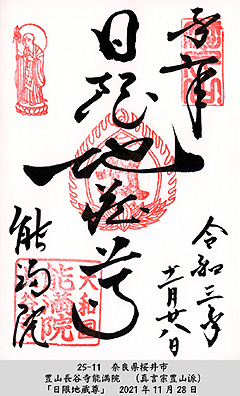 奉拝
日限地蔵尊
令和三年
十一月廿八日
能満院
大和国
能満院
25-11 奈良県桜井市
豊山長谷寺能満院 (真言宗豊山派)
「日限地蔵尊」 2021年11月28日